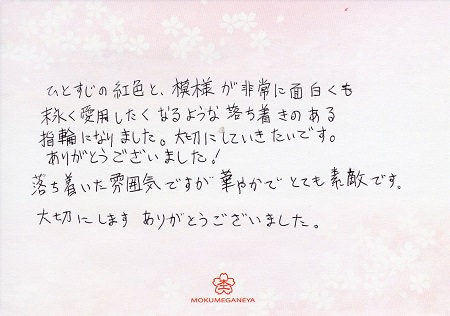 ひとすじの紅色と、模様が非常に面白くも
末永く愛用したくなるような落ち着きのある
指輪になりました。大切にしていきたいです。
ありがとうございました!
落ち着いた雰囲気ですが華やかでとても素敵です。
大切にします ありがとうございました。
MOKUMEGANEYA